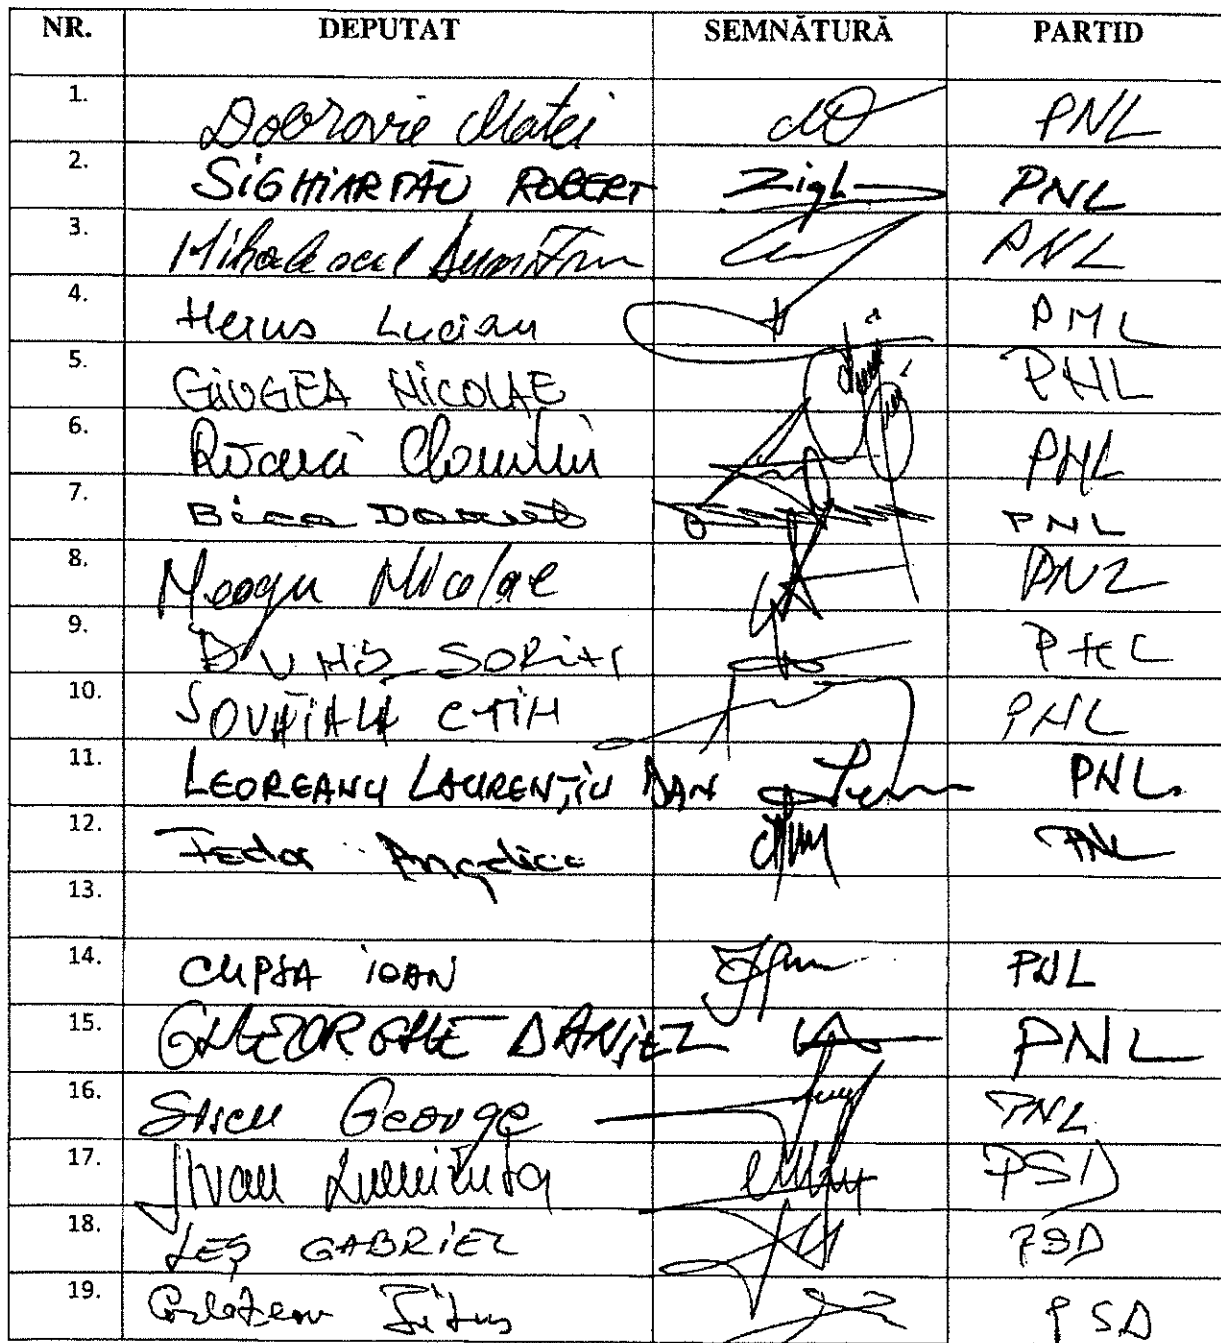 NR. DEPUTAT SEMNĂTURĂ PARTID
1. Dobrovie Matei PNL
2. SIGHIARTĂU ROBERT PNL
3. Mihalescul Dumitru PNL
4. Heius Lucian PNL
5. GIUGEA NICOLAE PNL
6. PNL
7. Bica Dănuț PNL
8. Neagu Nicolae PNL
9. SORIN PNL
10. SOVĂIALĂ CTIN PNL
11. LEOREANU LAURENȚIU DAN PNL.
12. Fedor Angelica PNL
13.
14. CUPȘA IOAN PNL
15. GHEORGHE DANIEL PNL
16. George PNL
17. Ivan Luminița PSD
18. LEȘ GABRIEL PSD
19. Corlățean Titus PSD